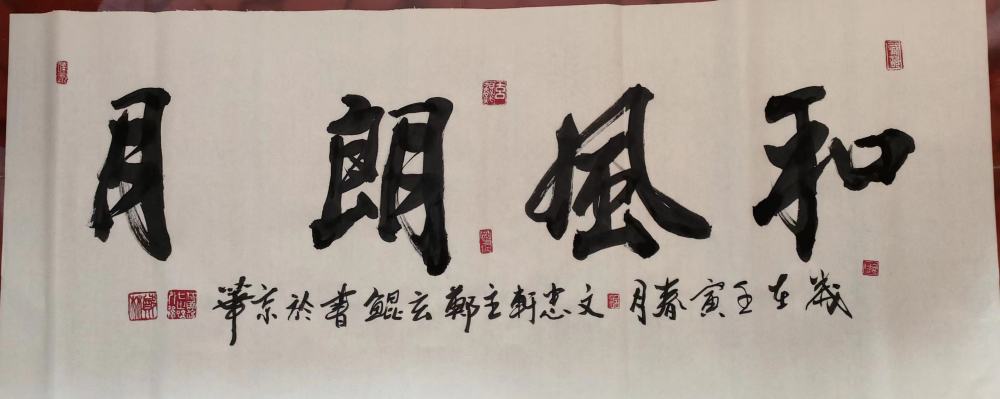 和風朗月
歲在壬寅春月文忠軒主鄭玄鯤書於京華